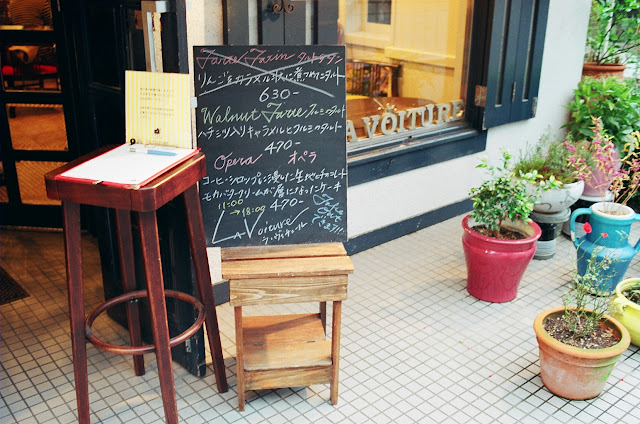 Tarte Tatin タルトタタン
りんごをキャラメル状に煮つめたタルト
630-
Walnut Tarte クルミのタルト
ハチミツ入りキャラメルとクルミのタルト
470-
Opera オペラ
コーヒーシロップに浸した生地とチョコレート
モカバタークリームが層になったケーキ
470-
11:00
→18:00
La Voiture
ラ・ヴァチュール
A VOITURE